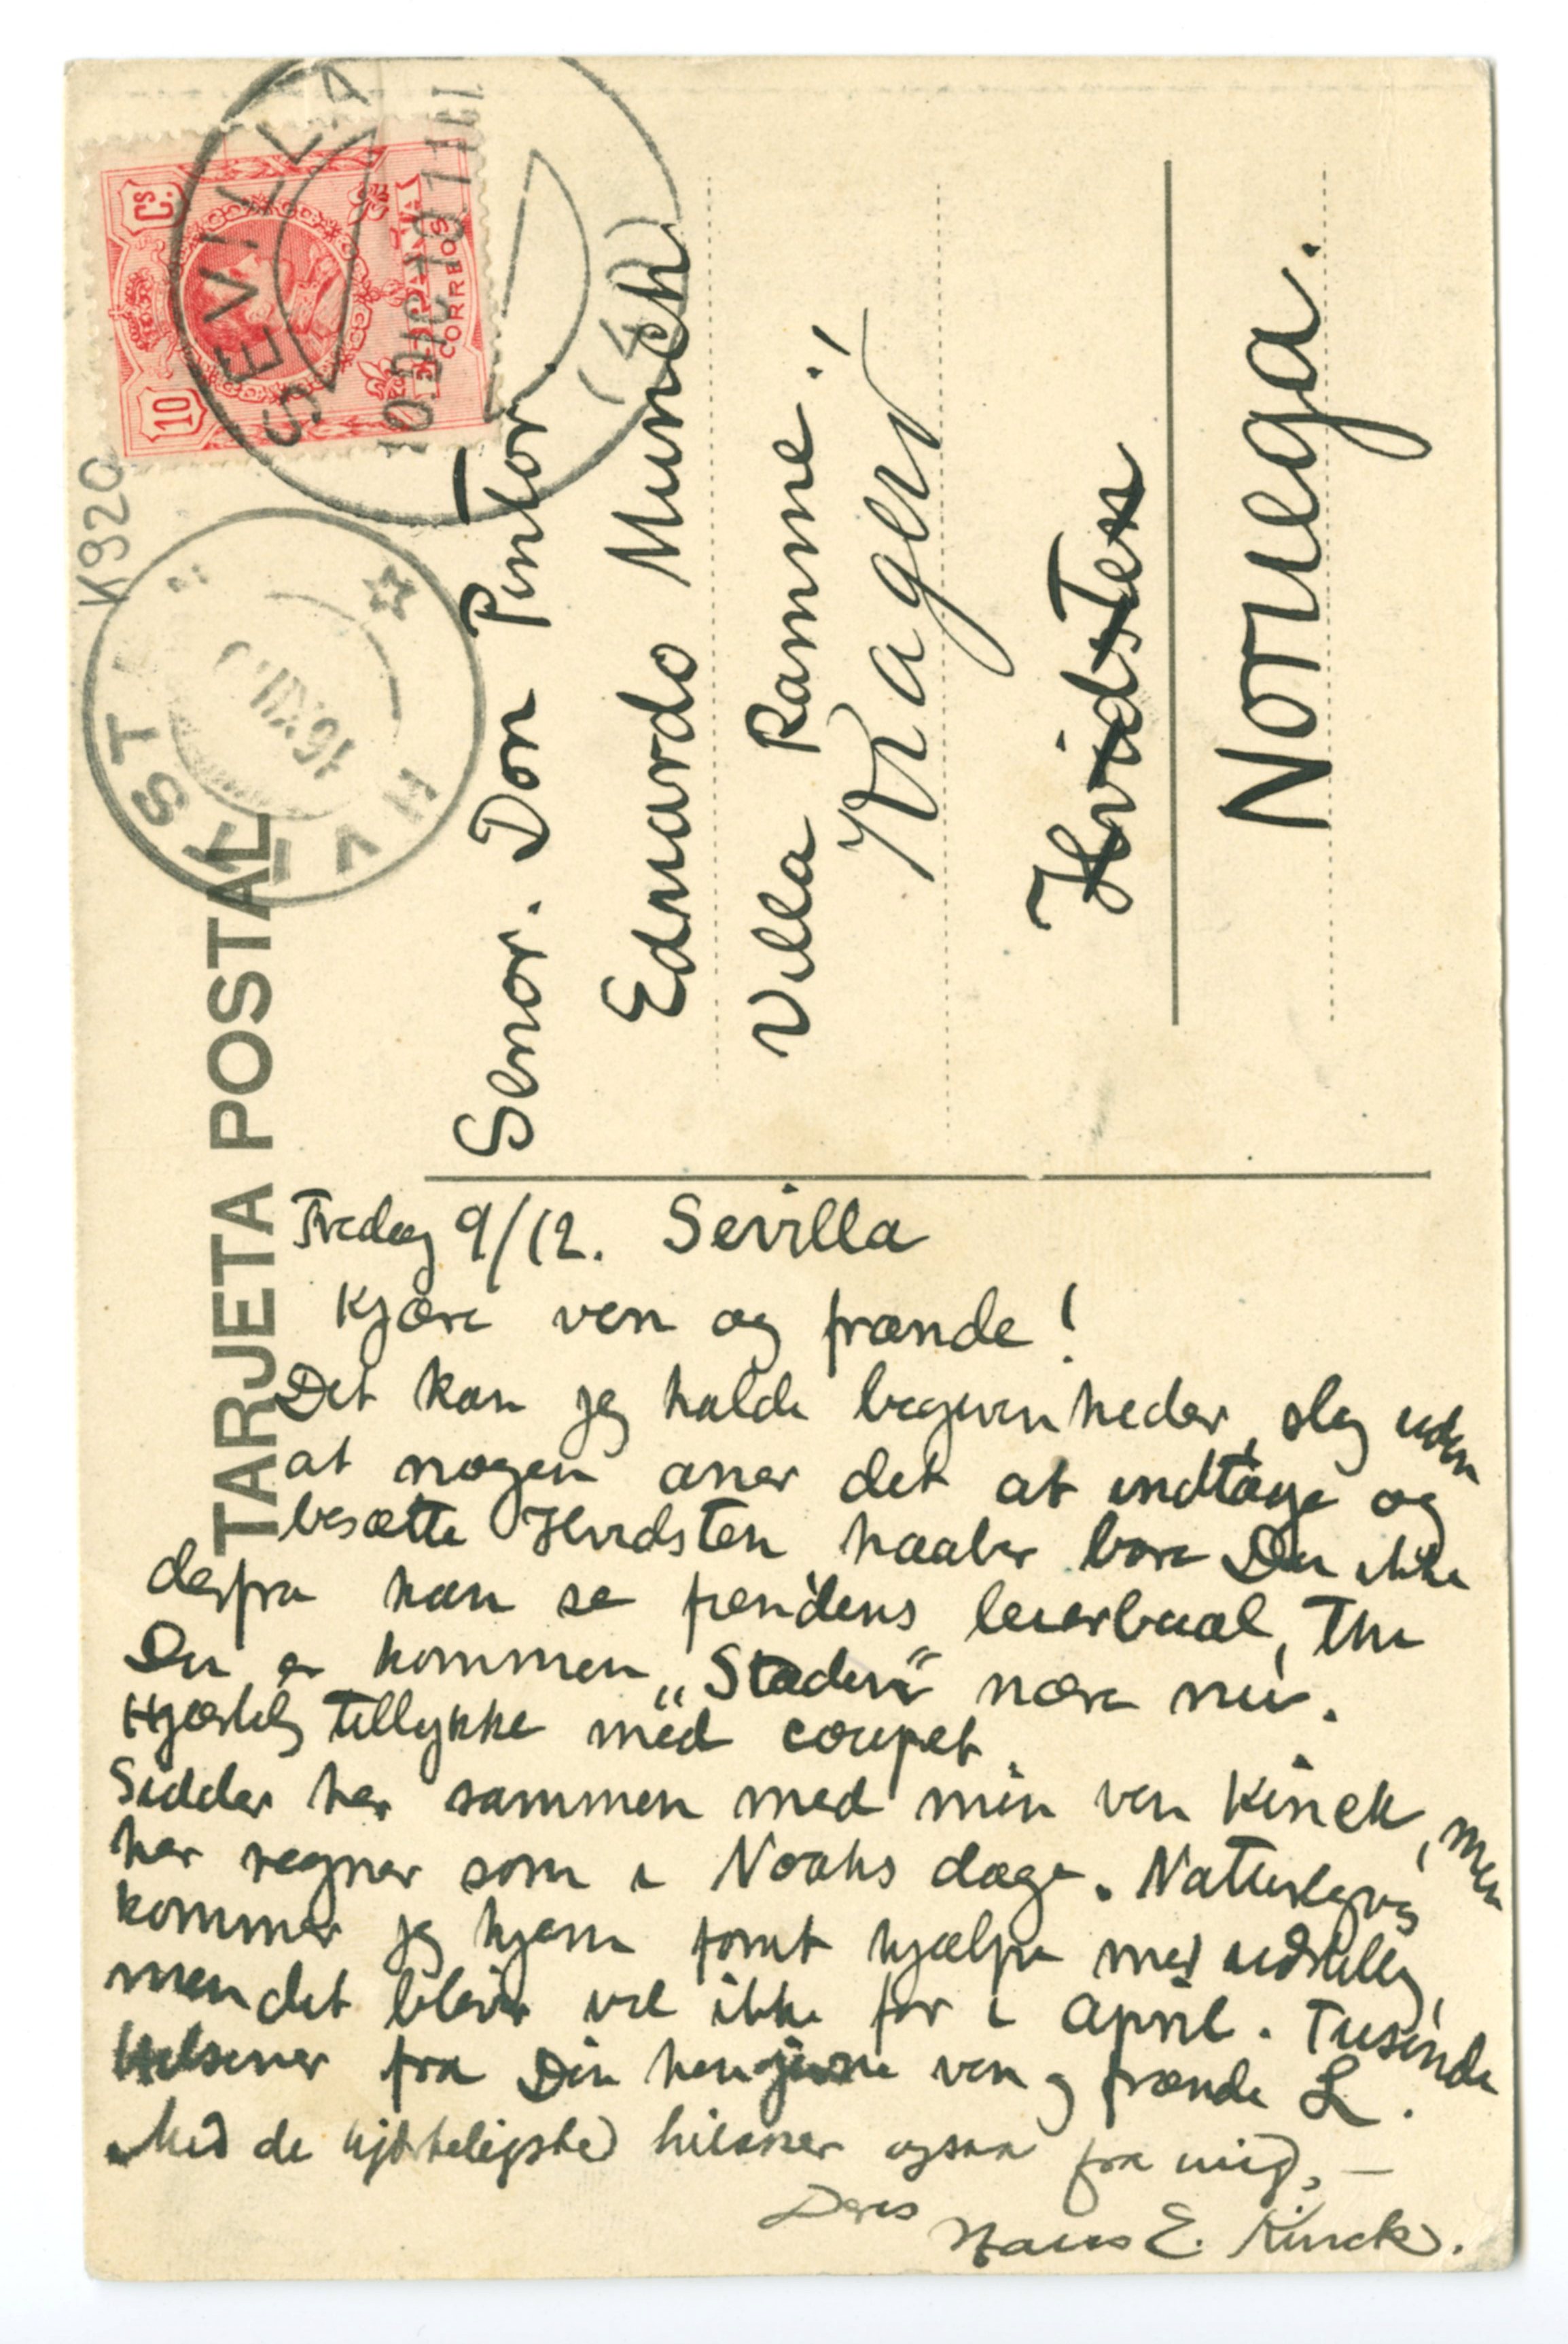 TARJETA POSTAL
K920
10 Cs.
ESPAÑA
CORREOS
SEVILLA
10.DIC.10.11M
HVITSTEN
16.XII.
Senor. Don Pintor.
Eduardo Munch
Villa Ramme.
Kragerø
Hvidsten
Noruega.
Fredag 9/12. Sevilla
Kjære ven og frænde!
Det kan jeg kalde begivenheder, slig uden
at nogen aner det at indtage og
besætte Hvidsten haaber bare Du ikke
derfra kan se fiendens leierbaal, thi
Du er kommen „Staden" nære nu.
Hjærtelig tillykke med coupet.
Sidder her sammen med min ven Kinck, men
her regner som i Noahs dage. Naturligvis
kommer jeg hjem forat hjælpe med udstillg,
men det bliver vel ikke før i april. Tusinde
hilsener fra Din hengivne ven og frænde L.
Med de hjerteligste hilsner ogsaa fra mig, —
Deres
Hans E. Kinck.